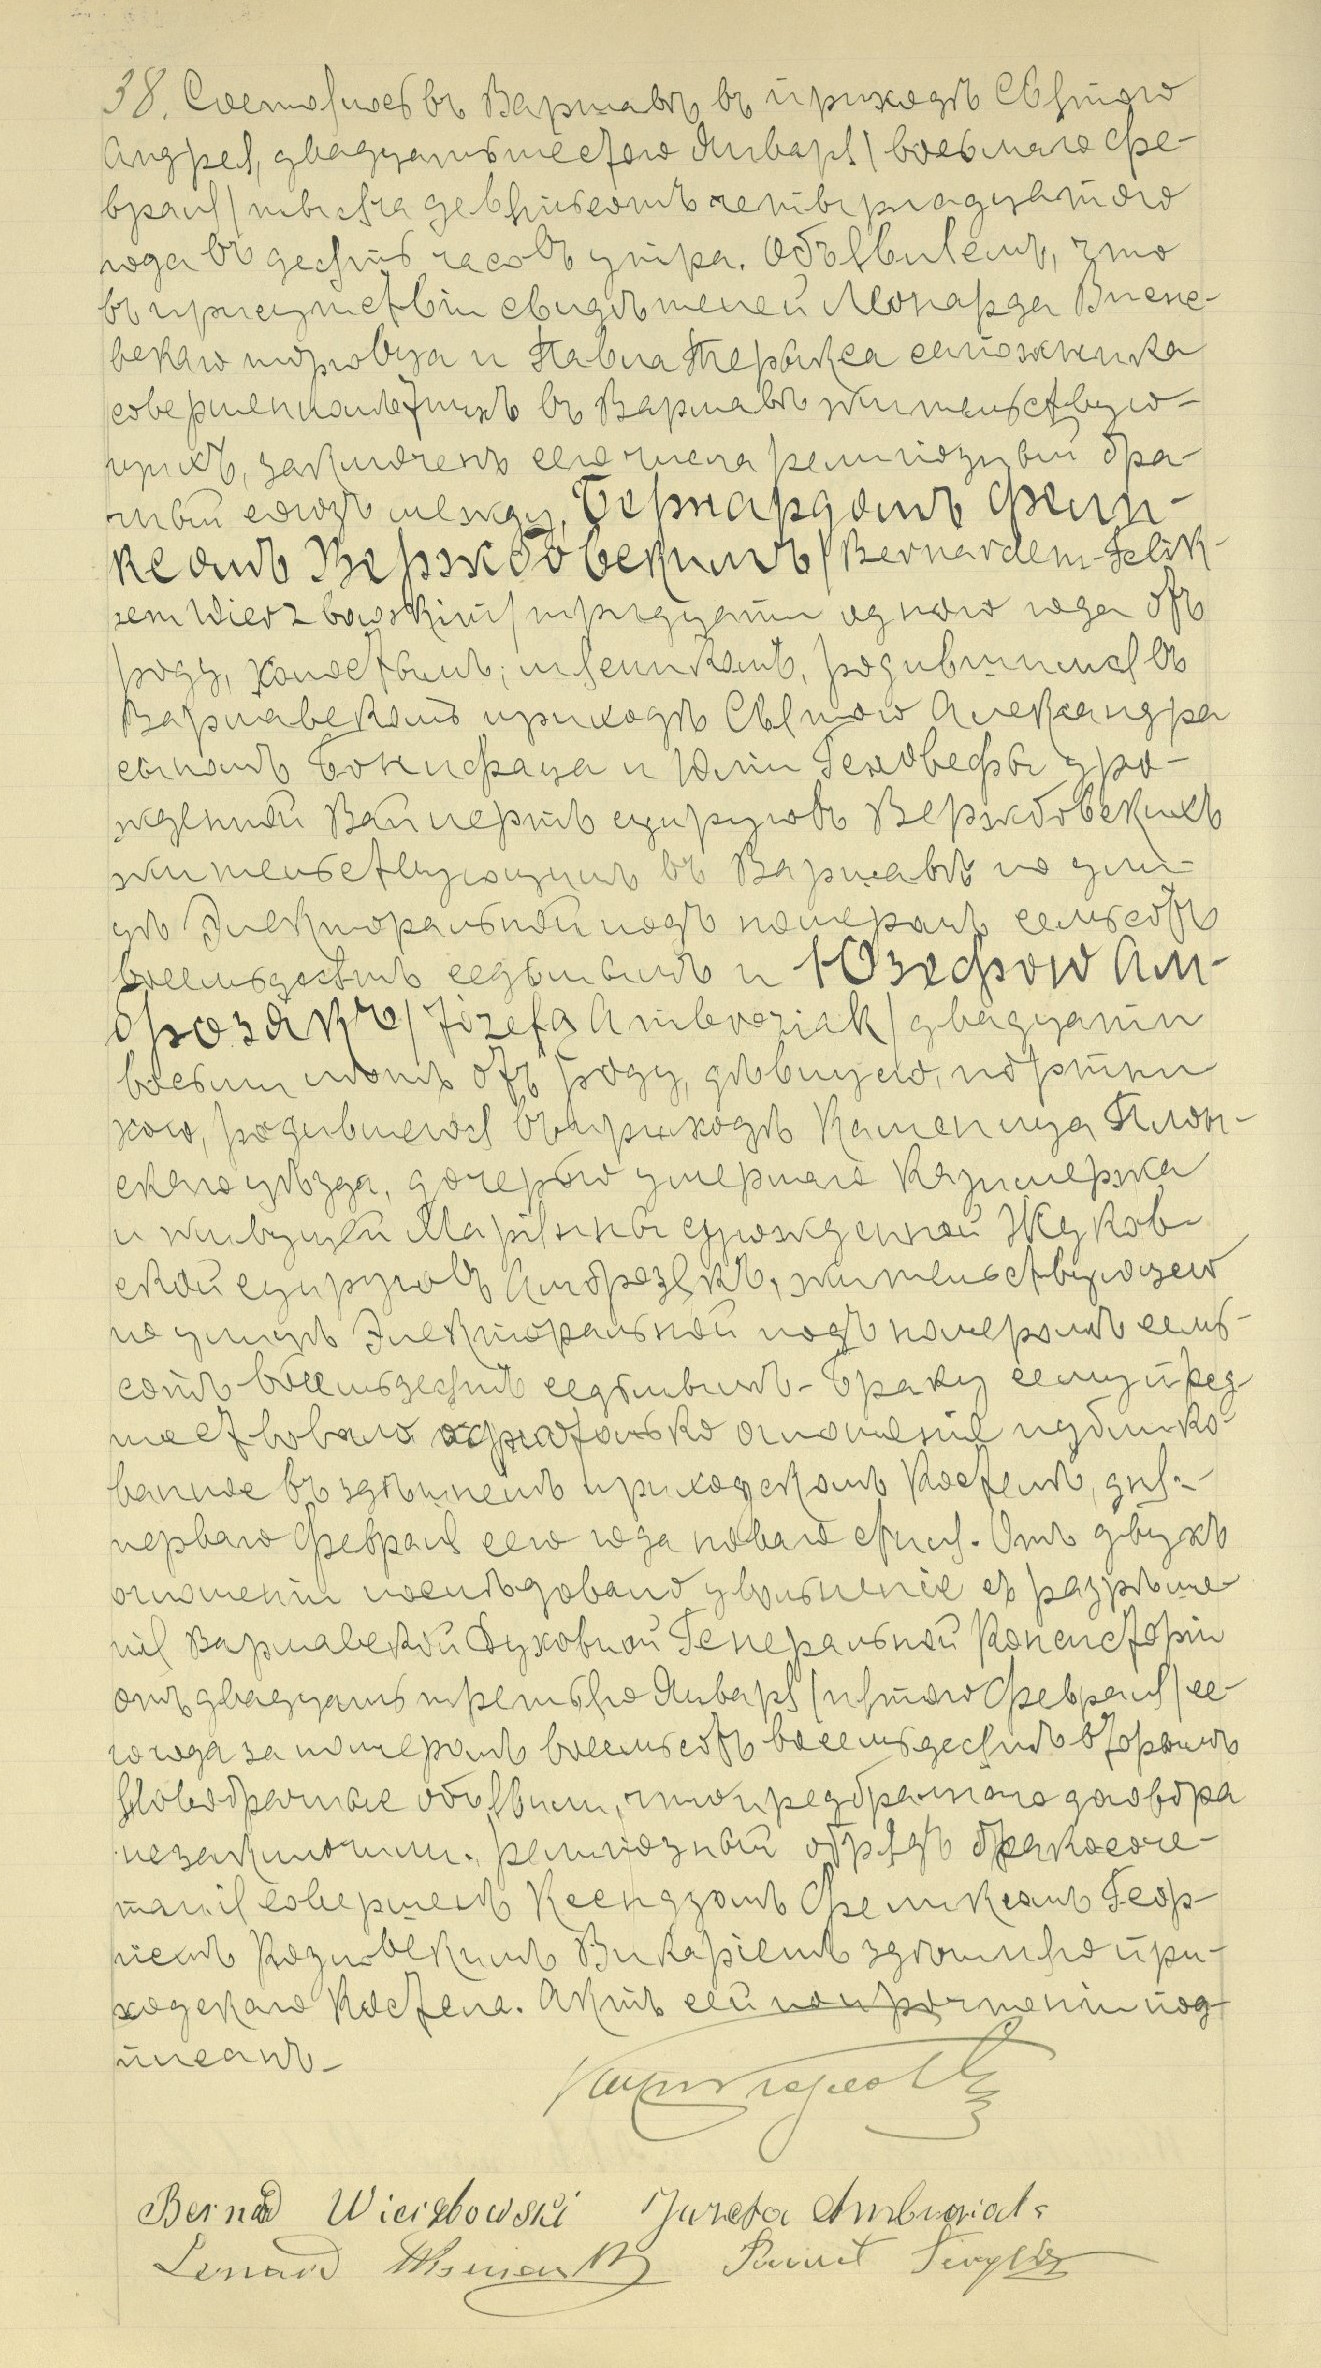 38. Состоялось въ Варшавѣ въ приходѣ Святого
Андрея, двадцать шестого Января / восьмого Фе-
враля / тысяча девятьсотъ четырнадцатого
года въ десять часовъ утра. Объявляемъ, что
въ присутствіи свидѣтелей Леонарда Висне-
вскаго торговца и Павла сапожника
совершеннолѣтнихъ въ Варшавѣ жительствую-
щихъ, заключенъ сего числа религіозный бра-
чный союзъ между, Бернардомъ Фели-
ксомъ Вержбовскимъ / Bernardem-Felik-
sem Wierzbowskim / тридцати одного года отъ
роду, холостымъ, родившимся въ
Варшавскомъ приходѣ Святого Александра
сыномъ Бонифаца и Юліи Геновефы уро-
жденной Вайнертъ супруговъ Вержбовскихъ
жительствующимъ въ Варшавѣ по ули-
цѣ Электоральной подъ номеромъ семьсотъ
восемьдесятъ седьмымъ и Юзефою Ам-
брозякъ / Józefą Ambroziak / двадцати
восьми лѣтъ отъ роду, дѣвицею, портни
хою, родившеюся въ приходѣ Каменица Плон-
скаго уѣзда, дочерью умершаго Казимержа
и живущей Маріянны урожденной Жуков-
ской супруговъ Амброзякъ, жительствующею
по улицѣ Электоральной подъ номеромъ семь-
сотъ восемьдесятъ седьмымъ. Браку сему пред-
шествовало однократное оглашеніе публико-
ванное въ здѣшнемъ приходскомъ Костелѣ, дня
перваго Февраля сего года новаго стиля. Отъ двухъ
оглашеній послѣдовало увольненіе съ разрѣше-
нія Варшавской Духовной Генеральной Консисторіи
отъ двадцать третьяго Января / пятого Февраля / се-
го года за номеромъ восемьсотъ восемьдесятъ вторымъ
Новобрачные объявили, что предбрачнаго договора
незаключили. Религіозный обрядъ бракосоче-
танія совершенъ Ксендзомъ Феликсомъ Геор-
гіемъ Козловскимъ Викаріемъ здѣшняго при-
ходскаго Костела. Актъ сей по прочтеніи под-
писанъ.
Bernard Wierzbowski Józefa Ambroziak
Lenard